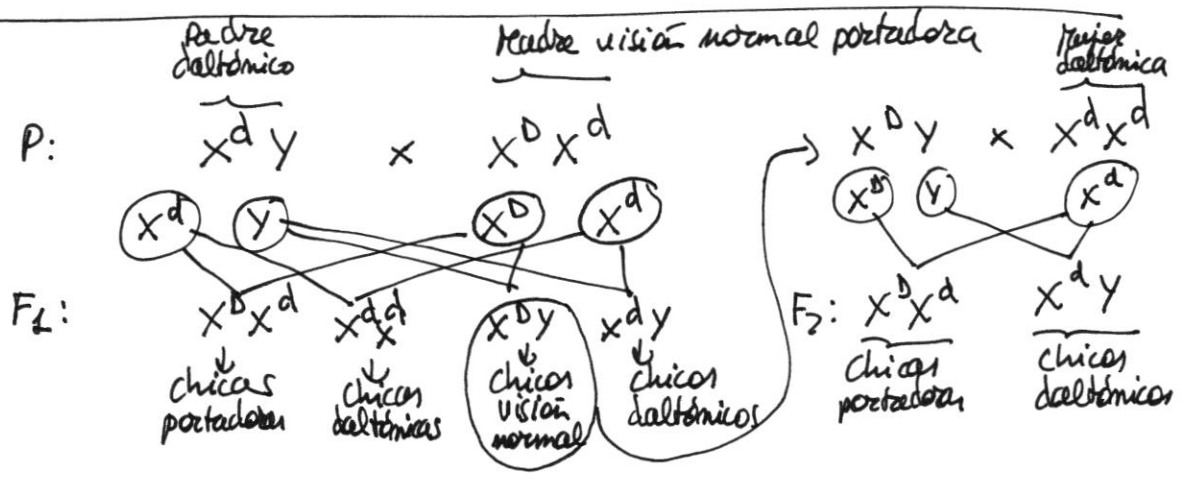 Padre daltónico
Madre visión normal portadora
Mujer daltónica
P: X^d Y x X^D X^d
X^D Y x X^d X^d
X^d Y X^D X^d
X^D Y X^d
F1: X^D X^d X^d X^d X^D Y X^d Y
F2: X^D X^d X^d Y
↓ chicas portadoras
↓ chicas daltónicas
↓ chicos visión normal
↓ chicos daltónicos
chicas portadoras
chicos daltónicos